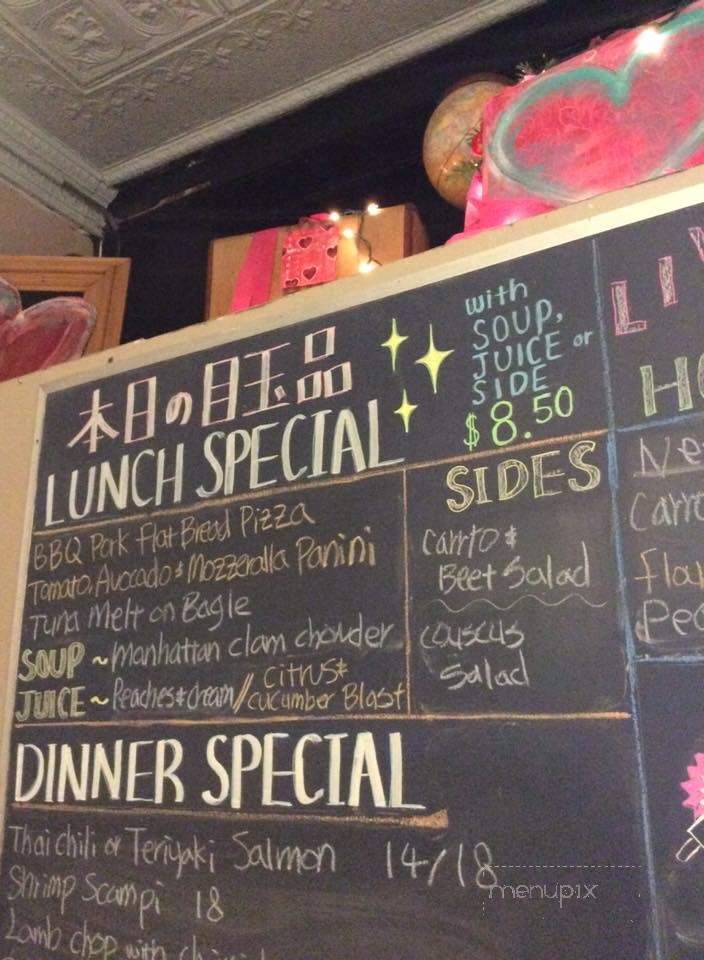 本日の目玉品
LUNCH SPECIAL
with
SOUP,
JUICE or
SIDE
$8.50
BBQ Pork Flat Bread Pizza
Tomato, Avocado & Mozzeralla Panini
Tuna Melt on Bagle
SOUP ~ Manhattan clam chowder
JUICE ~ Peaches & cream // citrus & cucumber Blast
SIDES
carrto &
Beet Salad
couscus
Salad
DINNER SPECIAL
Thai chili or Teriyaki Salmon 14/18
Shrimp Scampi 18
Lamb chop with
LI
H
Ne
Carr
fla
Pe
menupix